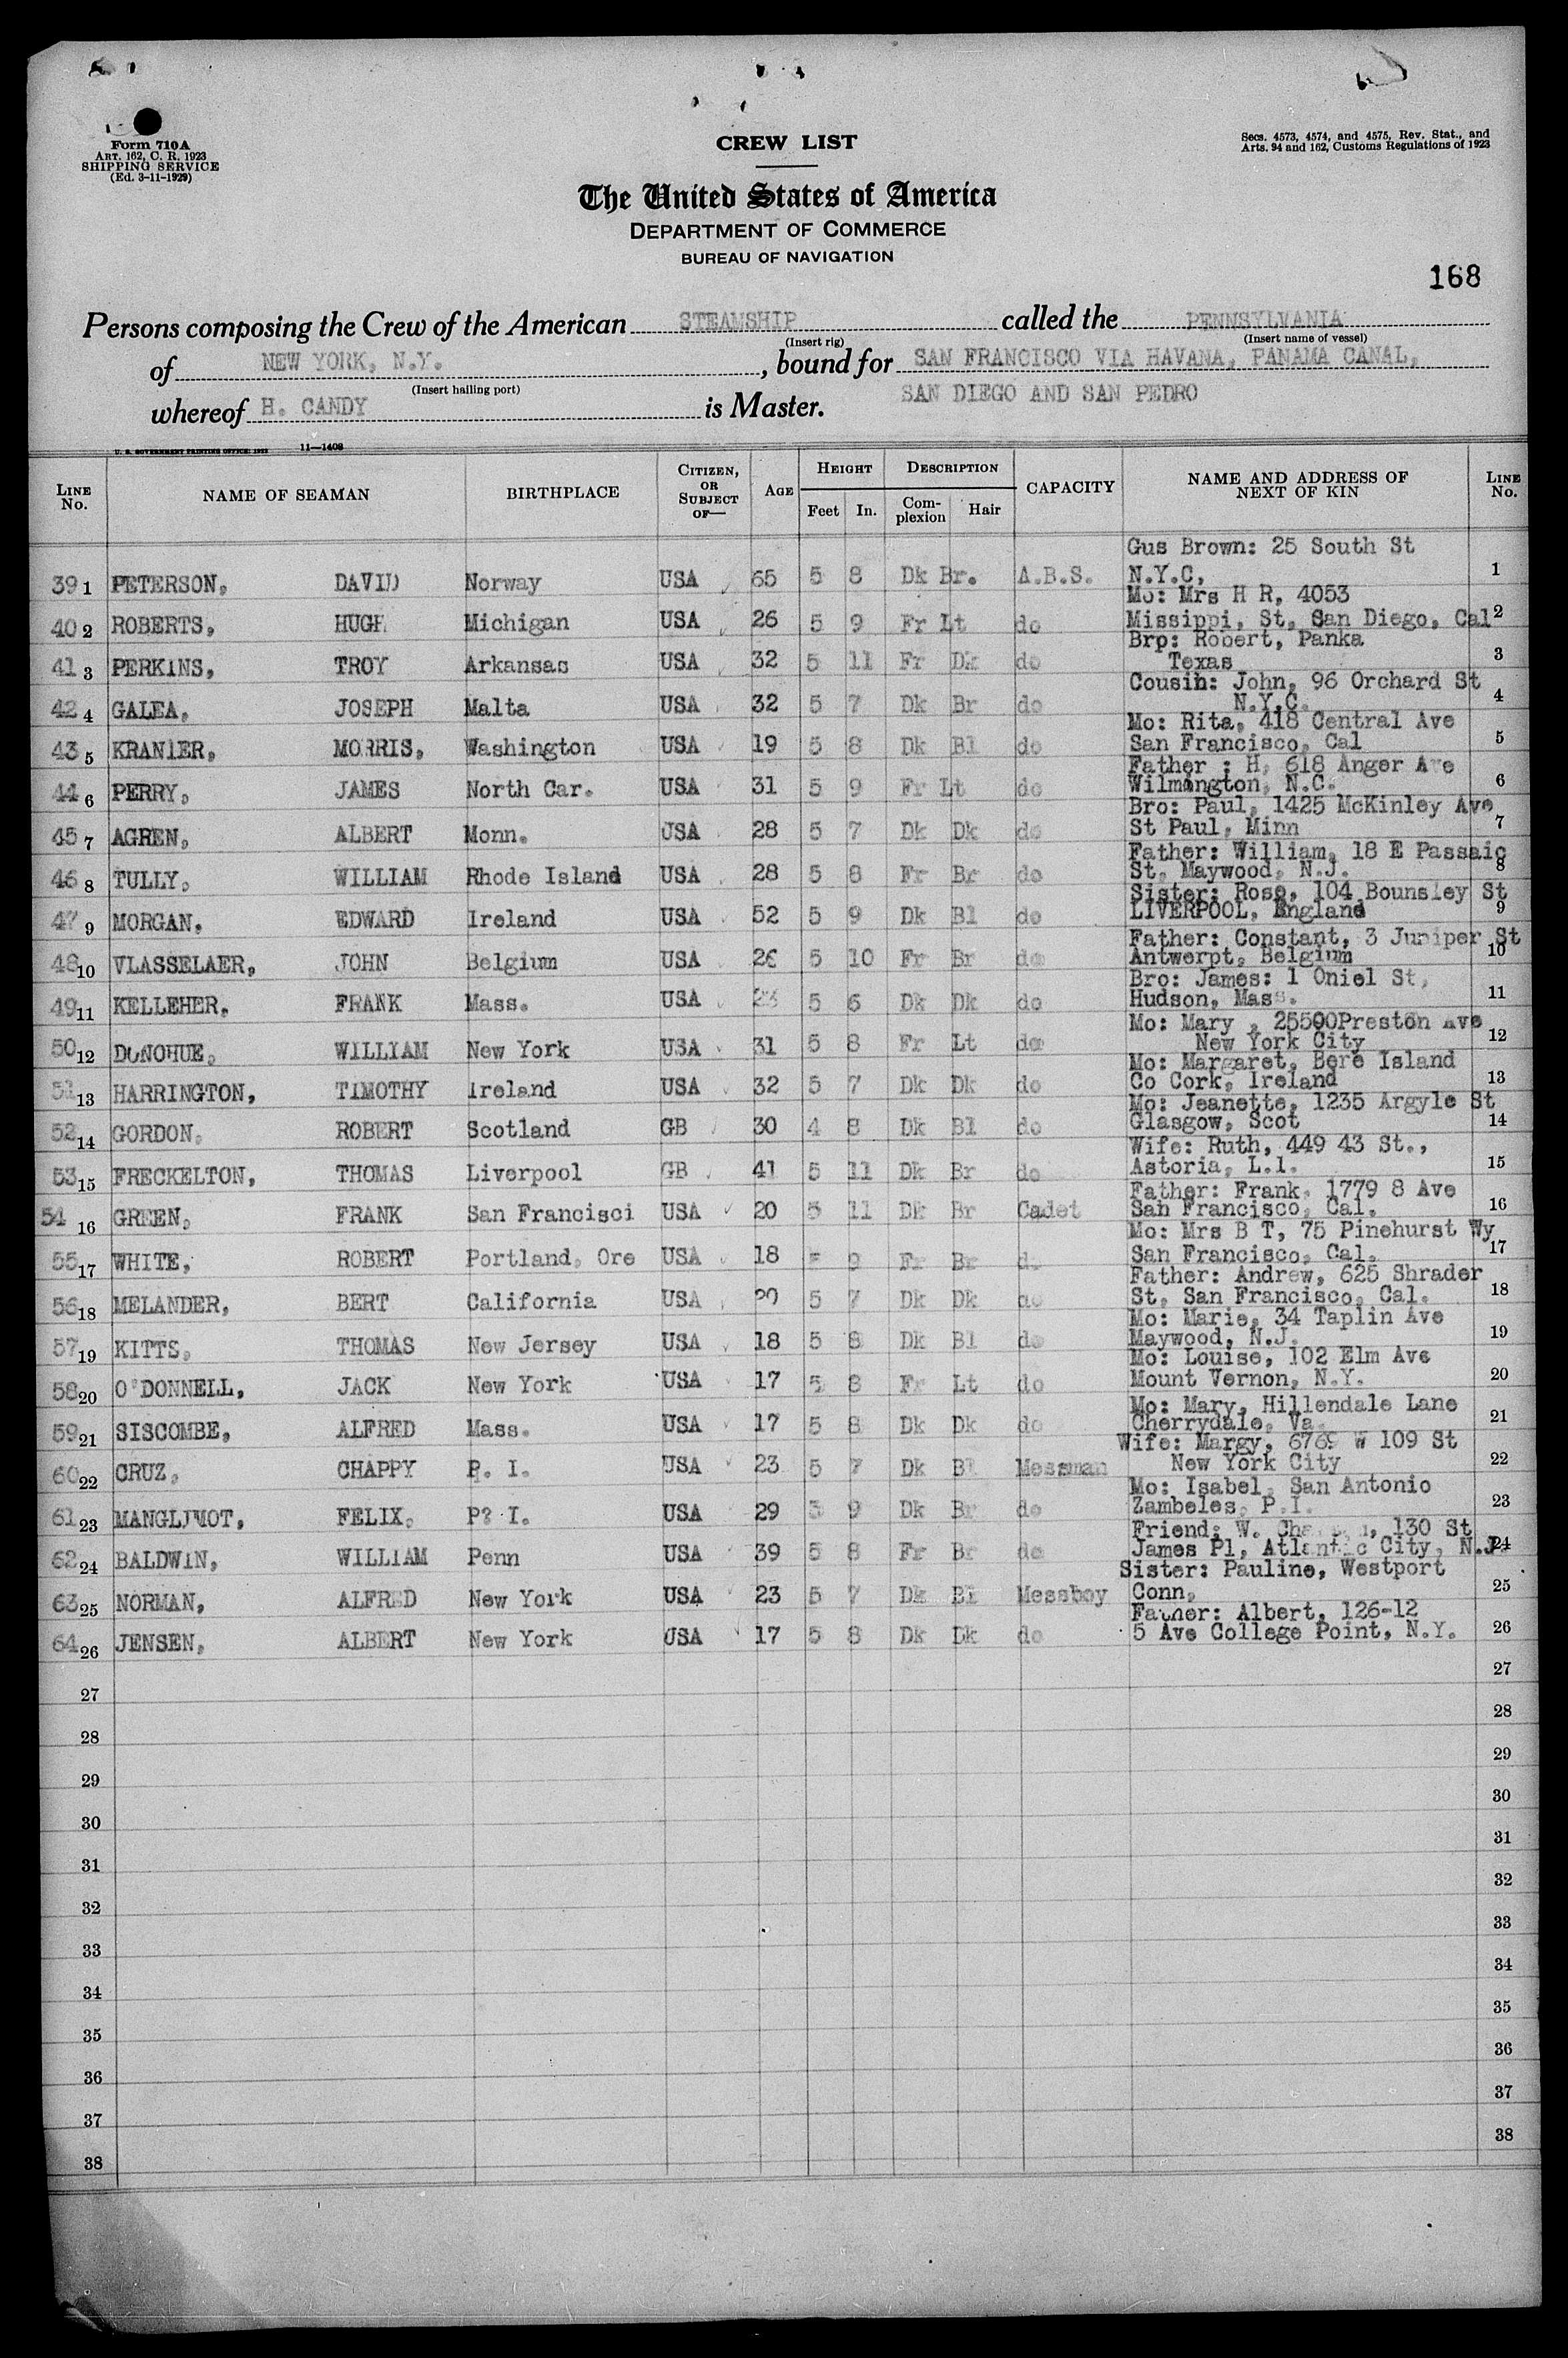 Form 710A
ART. 162, C. R. 1923
SHIPPING SERVICE
(Ed. 3-11-1929)
CREW LIST
Secs. 4573, 4574, and 4575, Rev. Stat., and
Arts. 94 and 162, Customs Regulations of 1923
The United States of America
DEPARTMENT OF COMMERCE
BUREAU OF NAVIGATION
168
Persons composing the Crew of the American STEAMSHIP called the PENNSYLVANIA
(Insert rig) (Insert name of vessel)
of NEW YORK, N.Y. , bound for SAN FRANCISCO VIA HAVANA, PANAMA CANAL,
(Insert hailing port)
whereof H. CANDY is Master. SAN DIEGO AND SAN PEDRO
U. S. GOVERNMENT PRINTING OFFICE: 11—1408
LINE No. NAME OF SEAMAN BIRTHPLACE CITIZEN, OR SUBJECT OF— AGE HEIGHT Feet In. DESCRIPTION Complexion Hair CAPACITY NAME AND ADDRESS OF NEXT OF KIN LINE No.
Gus Brown: 25 South St
39 1 PETERSON, DAVID Norway USA 65 5 8 Dk Br. A.B.S. N.Y.C, 1
Mo: Mrs H R, 4053
40 2 ROBERTS, HUGH Michigan USA 26 5 9 Fr Lt do Missippi, St, San Diego, Cal 2
Brp: Robert, Panka
41 3 PERKINS, TROY Arkansas USA 32 5 11 Fr Dk do Texas 3
Cousin: John, 96 Orchard St
42 4 GALEA, JOSEPH Malta USA 32 5 7 Dk Br do N.Y.C. 4
Mo: Rita, 418 Central Ave
43 5 KRANIER, MORRIS, Washington USA 19 5 8 Dk Bl do San Francisco, Cal 5
Father : H, 618 Anger Ave
44 6 PERRY, JAMES North Car. USA 31 5 9 Fr Lt do Wilmington, N.C. 6
Bro: Paul, 1425 McKinley Ave
45 7 AGREN, ALBERT Monn. USA 28 5 7 Dk Dk do St Paul, Minn 7
Father: William, 18 E Passaic
46 8 TULLY, WILLIAM Rhode Island USA 28 5 8 Fr Br do St, Maywood, N.J. 8
Sister: Rose, 104 Bounsley St
47 9 MORGAN, EDWARD Ireland USA 52 5 9 Dk Bl do LIVERPOOL, England 9
Father: Constant, 3 Juniper St
48 10 VLASSELAER, JOHN Belgium USA 26 5 10 Fr Br do Antwerpt, Belgium 10
Bro: James: 1 Oniel St,
49 11 KELLEHER, FRANK Mass. USA 5 6 Dk Dk do Hudson, Mass. 11
Mo: Mary , 25500Preston Ave
50 12 DONOHUE, WILLIAM New York USA 31 5 8 Fr Lt do New York City 12
Mo: Margaret, Bere Island
51 13 HARRINGTON, TIMOTHY Ireland USA 32 5 7 Dk Dk do Co Cork, Ireland 13
Mo: Jeanette, 1235 Argyle St
52 14 GORDON, ROBERT Scotland GB 30 4 8 Dk Bl do Glasgow, Scot 14
Wife: Ruth, 449 43 St.,
53 15 FRECKELTON, THOMAS Liverpool GB 41 5 11 Dk Br do Astoria, L.I. 15
Father: Frank, 1779 8 Ave
54 16 GREEN, FRANK San Francisci USA 20 5 11 Dk Br Cadet San Francisco, Cal. 16
Mo: Mrs B T, 75 Pinehurst Wy
55 17 WHITE, ROBERT Portland, Ore USA 18 9 Fr Br San Francisco, Cal. 17
Father: Andrew, 625 Shrader
56 18 MELANDER, BERT California USA 20 5 7 Dk Dk do St, San Francisco, Cal. 18
Mo: Marie, 34 Taplin Ave
57 19 KITTS, THOMAS New Jersey USA 18 5 8 Dk Bl do Maywood, N.J. 19
Mo: Louise, 102 Elm Ave
58 20 O'DONNELL, JACK New York USA 17 5 8 Fr Lt do Mount Vernon, N.Y. 20
Mo: Mary, Hillendale Lane
59 21 SISCOMBE, ALFRED Mass. USA 17 5 8 Dk Dk do Cherrydale, Va. 21
Wife: Margy, 6769 W 109 St
60 22 CRUZ, CHAPPY P. I. USA 23 5 7 Dk Bl Messman New York City 22
Mo: Isabel, San Antonio
61 23 FELIX, P? I. USA 29 5 9 Dk Br do Zambeles, P.I. 23
Friend: W. 130 St
62 24 BALDWIN, WILLIAM Penn USA 39 5 8 Fr Br do James Pl, Atlantic City, N.J. 24
Sister: Pauline, Westport
63 25 NORMAN, ALFRED New York USA 23 5 7 Dk Bl Messboy Conn, 25
Father: Albert, 126-12
64 26 JENSEN, ALBERT New York USA 17 5 8 Dk Dk do 5 Ave College Point, N.Y. 26
27 27
28 28
29 29
30 30
31 31
32 32
33 33
34 34
35 35
36 36
37 37
38 38